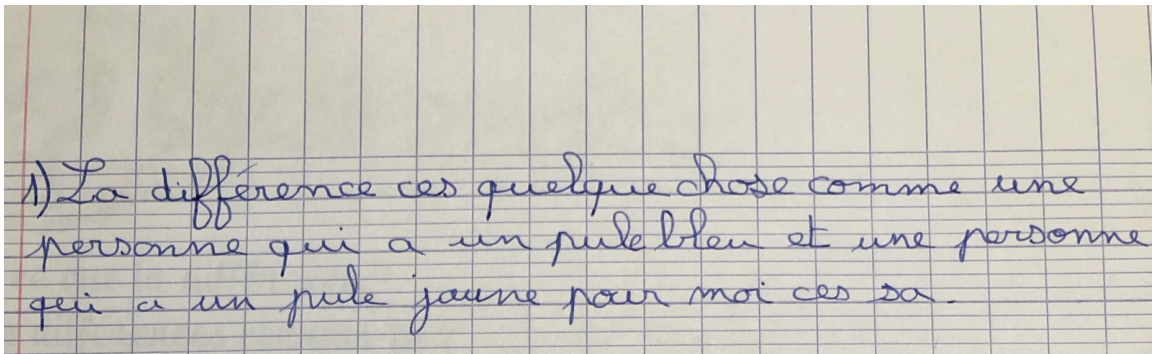 1) La différence ces quelque chose comme une
personne qui a un pule bleu et une personne
qui a un pule jaune pour moi ces sa.